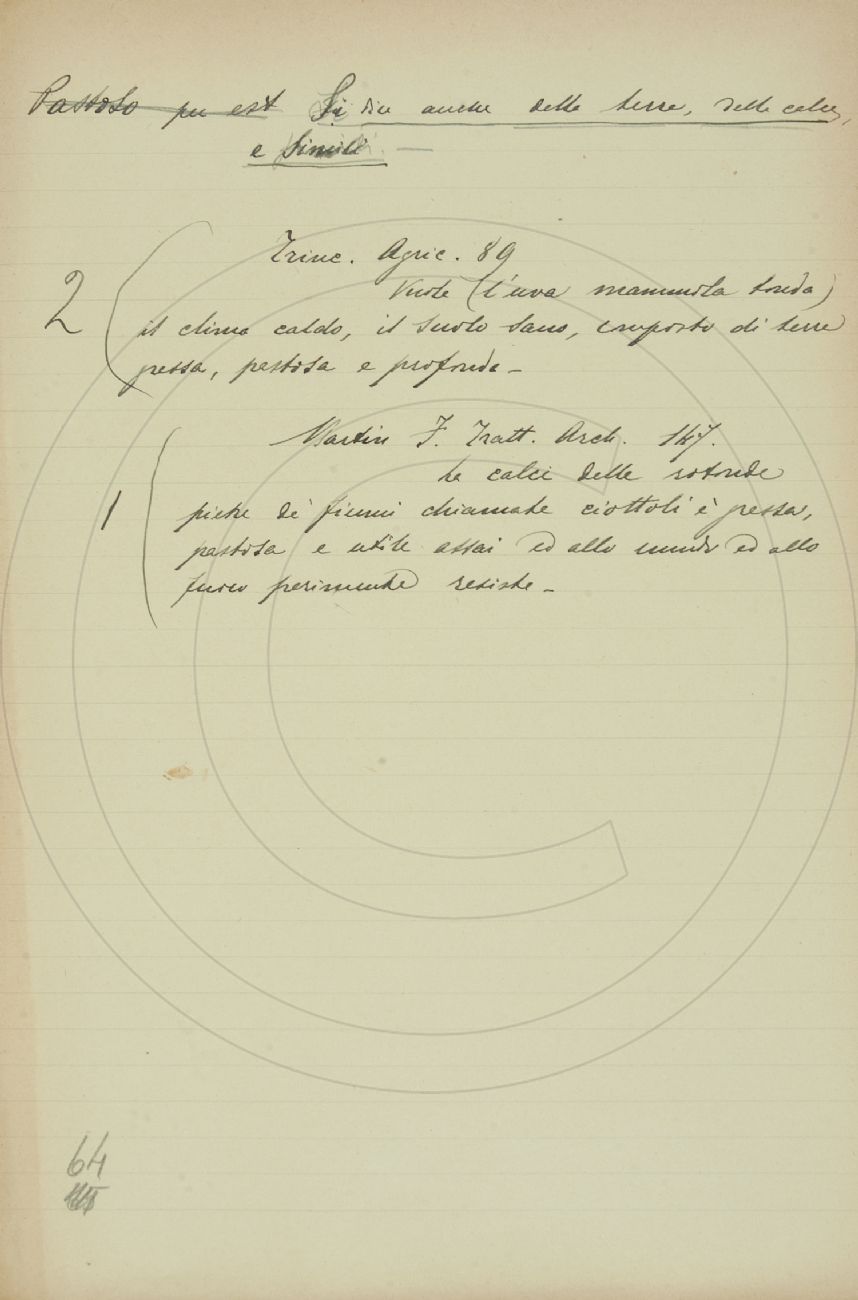 Pastoso per est Si dice anche delle terre, delle calci,
e Simili —
Trinc. Agric. 89
2 Vuole (l'uva mammola tonda)
il clima caldo, il suolo sano, composto di terre
grossa, pastosa e profonda -
Martin F. Tratt. Arch. 147.
La calci delle rotonde
1 pietre de' fiumi chiamate ciottoli è grossa,
pastosa e utile assai ed allo umido ed allo
fuoco perimente resiste -
64